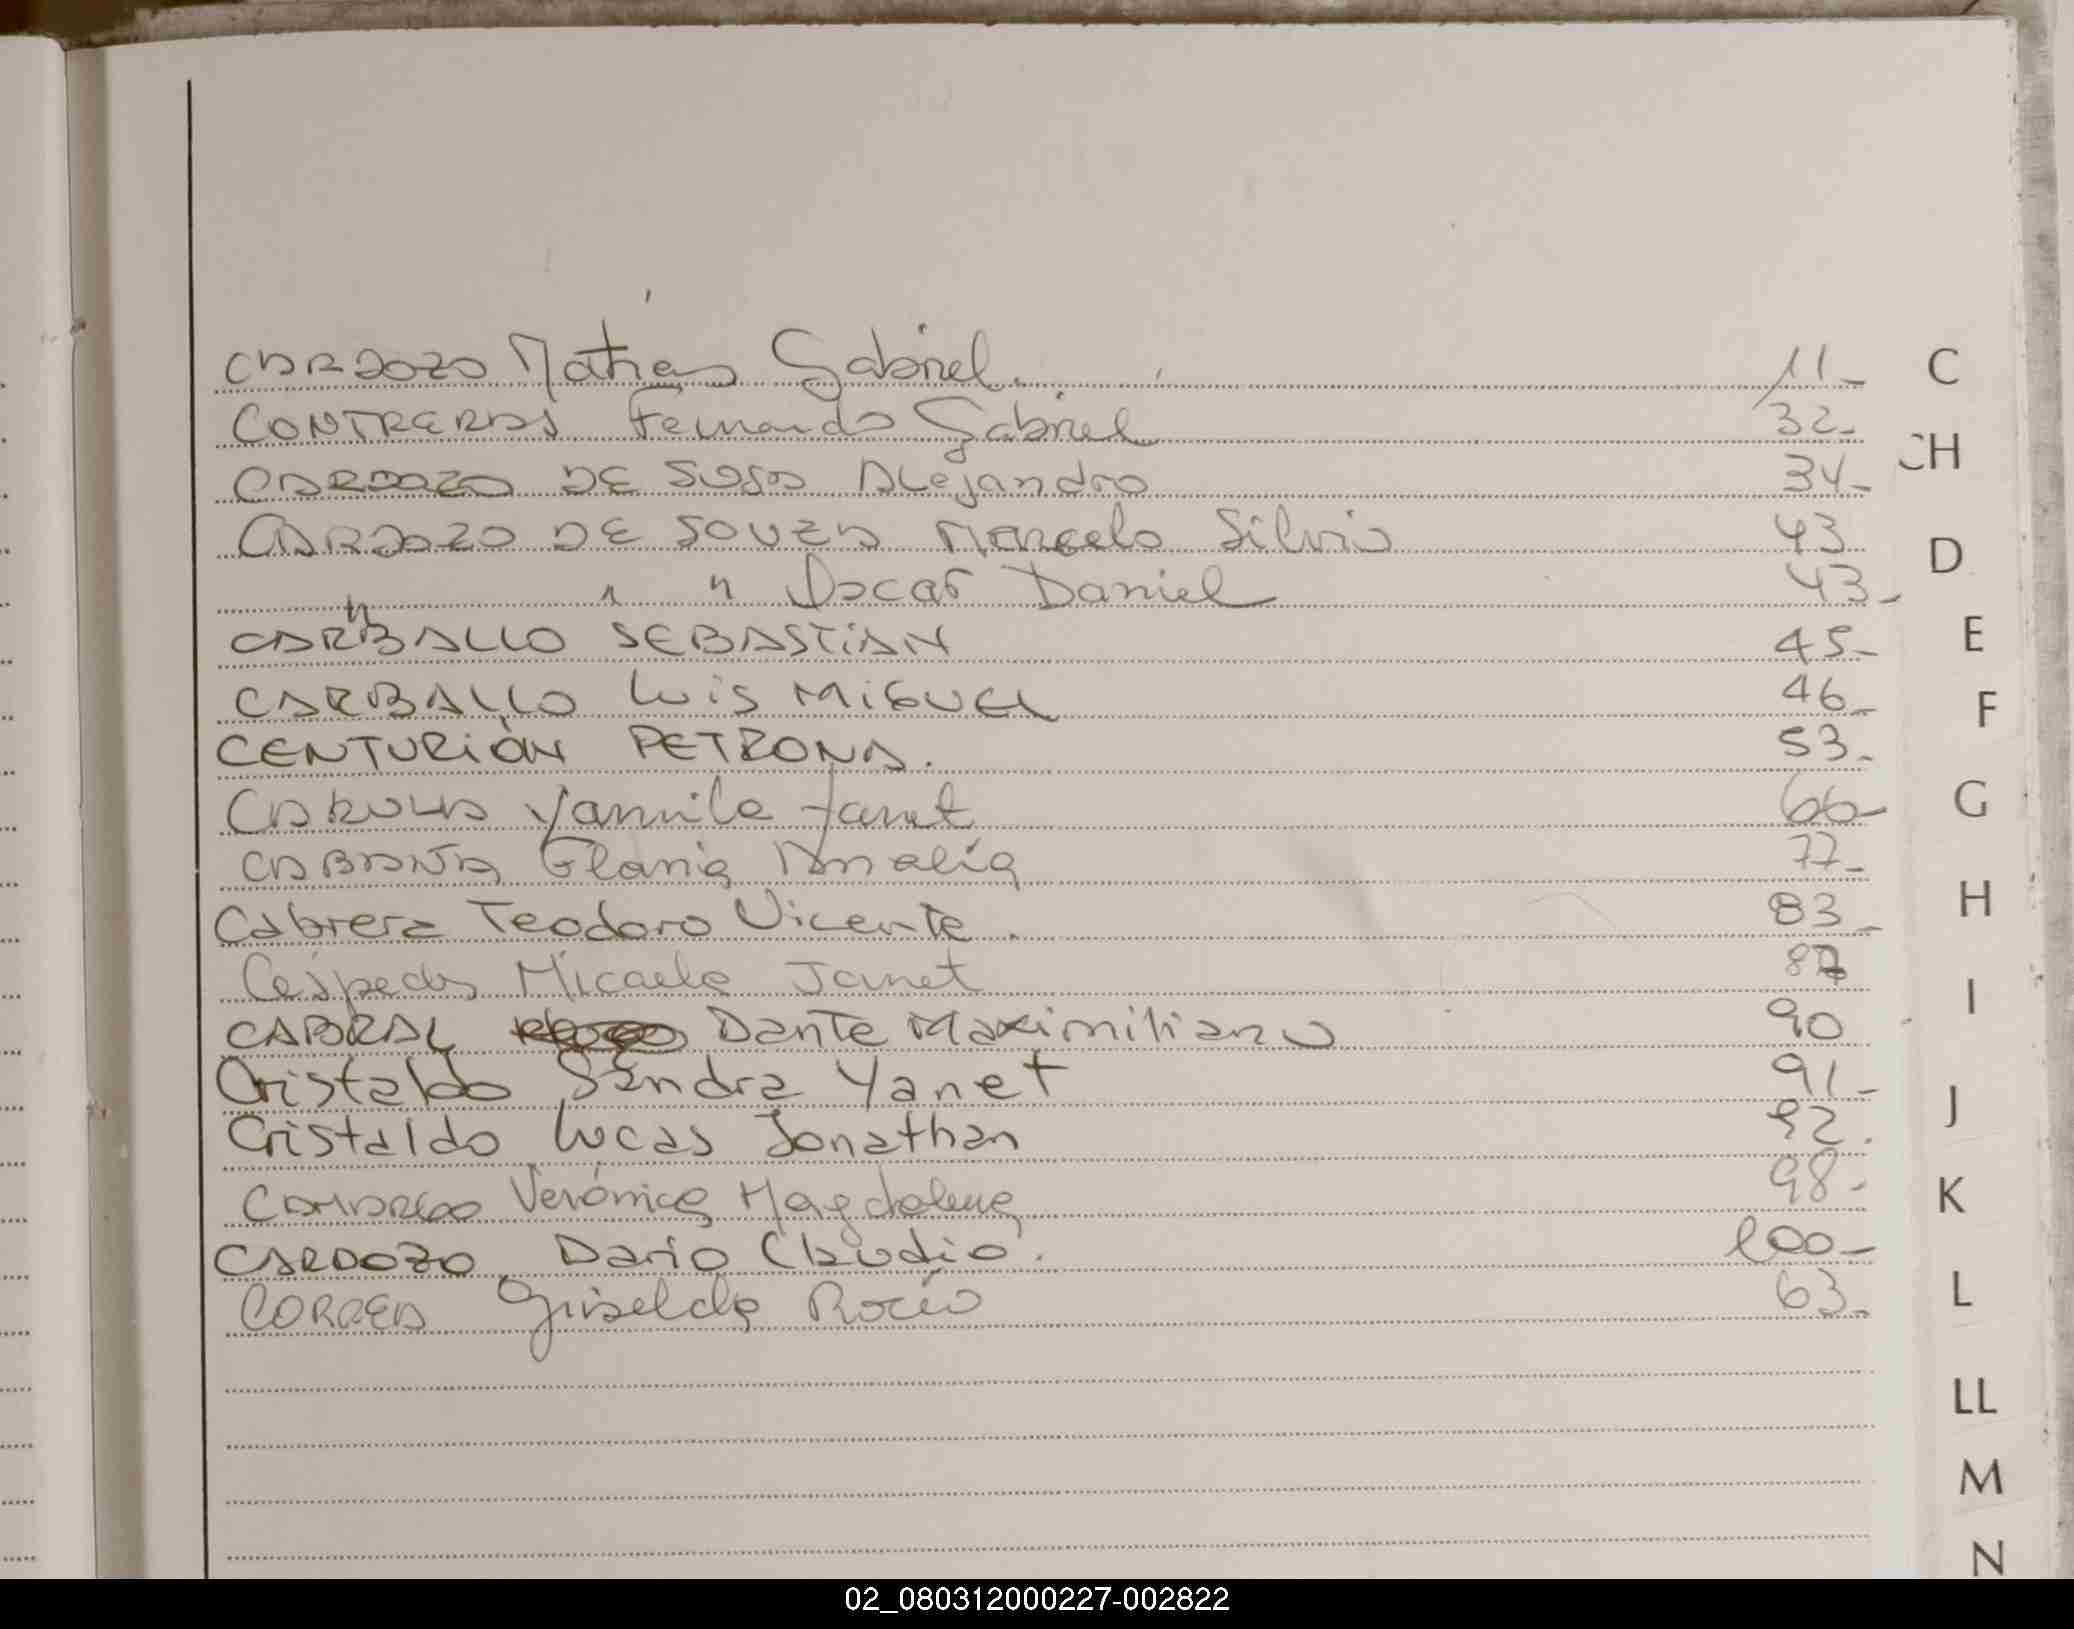 CARDOZO Matías Gabriel. 11-
CONTRERAS Fernando Gabriel 32-
CARDOZO DE SOSA Alejandro 34-
CARDOZO DE SOUZA Marcelo Silvio 43
" " " Oscar Daniel 43-
CARBALLO SEBASTIAN 45-
CARBALLO Luis MIGUEL 46-
CENTURIÓN PETRONA. 53-
Yamila Janet 66-
Analía 77-
Cabrera Teodoro Vicente. 83-
Céspedes Micaela Janet 87
CABRAL Dante Maximiliano 90
Cristaldo Sandra Yanet 91-
Cristaldo Lucas Jonathan 92.
Verónica Magdalena 98-
CARDOZO Dario Claudio. 100-
CORREA Griselda Rocío 63-
C
CH
D
E
F
G
H
I
J
K
L
LL
M
N
02_080312000227-002822